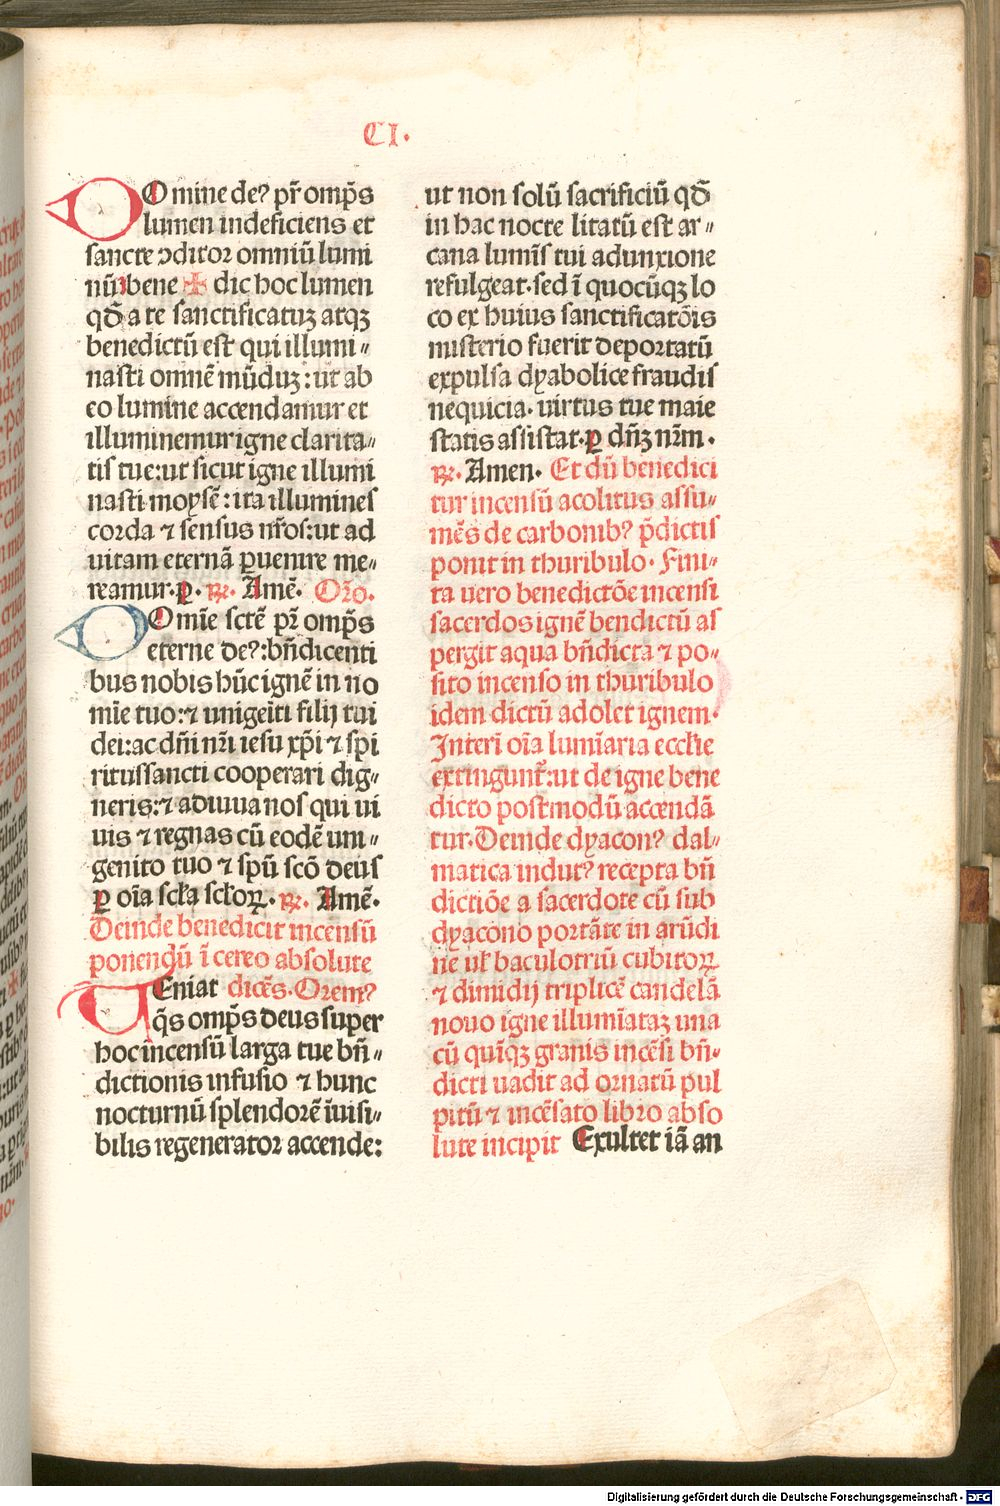 CI.
DOmine deꝰ pr̄ omp̄s
lumen indeficiens et
sancte ↄditor omniū lumi
nū: bene ✠ dic hoc lumen
qd̄ a te sanctificatuꝫ atqꝫ
benedictū est qui illumi〃
nasti omnē mūduꝫ: ut ab
eo lumine accendamur et
illuminemur igne clarita〃
tis tue: ut sicut igne illumi
nasti moysē: ita illumines
corda ⁊ sensus nr̄os: ut ad
uitam eternā ꝑuenire me〃
reamur. ꝑ. ℞. Amē. Oro.
DOmīe sctē pr̄ omp̄s
eterne deꝰ: bn̄dicenti
bus nobis hūc ignē in no
mīe tuo: ⁊ unigeīti filij tui
dei: ac dn̄i nr̄i iesu xp̄i ⁊ spi
ritussancti cooperari dig〃
neris: ⁊ adiuua nos qui ui
uis ⁊ regnas cū eodē uni〃
genito tuo ⁊ spū scō deus
ꝑ oīa scła scłoꝝ. ℞. Amē.
Deinde benedicit incensū
ponendū ī cereo absolute
VEniat dicēs. Oremꝰ
q̄s omp̄s deus super
hoc incensū larga tue bn̄〃
dictionis infusio ⁊ hunc
nocturnū splendorē īuisi〃
bilis regenerator accende:
ut non solū sacrificiū qd̄
in hac nocte litatū est ar〃
cana lumīs tui adunxione
refulgeat. sed ī quocūqꝫ lo
co ex huius sanctificatōis
misterio fuerit deportatū
expulsa dyabolice fraudis
nequicia. uirtus tue maie
statis assistat. ꝑ dn̄ꝫ nr̄m.
℞. Amen. Et dū benedici
tur incensū acolitus assu〃
mēs de carbonibꝰ p̄dictis
ponit in thuribulo. Fini〃
ta uero benedictōe incensi
sacerdos ignē bendictū as
pergit aqua bn̄dicta ⁊ po〃
sito incenso in thuribulo
idem dictū adolet ignem.
Interī oīa lumīaria eccłie
extingunt᷑: ut de igne bene
dicto postmodū accendā
tur. Deinde dyaconꝰ dal〃
matica indutꝰ recepta bn̄
dictiōe a sacerdote cū sub
dyacono portāte in arūdi
ne uł baculo triū cubitoꝝ
⁊ dimidij triplicē candelā
nouo igne illumīataꝫ una
cū quīqꝫ granis incēsi bn̄〃
dicti uadit ad ornatū pul
pitū ⁊ incēsato libro abso
lute incipit Exultet iā an
Digitalisierung gefördert durch die Deutsche Forschungsgemeinschaft - DFG